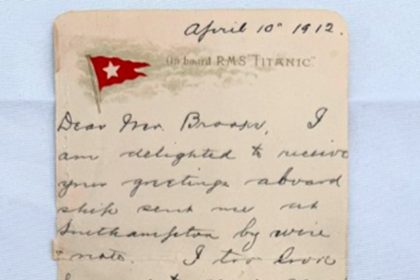 April 10th 1912.
On board R.M.S. "TITANIC"
Dear Mr. Brooke, I
am delighted to receive
your greetings aboard
ship sent me at
Southampton by wire
note. I too look